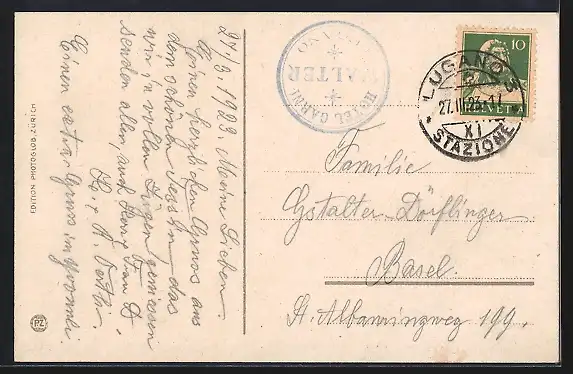 27/3. 1923 Meine Lieben.
Einen herzlichen Gruss aus
dem schönen Tessin, das
wir in vollen Zügen geniessen
senden allen, auch Herr Frau D.
Hs. & A.
Einen extra Gruss im
EDITION PHOTOGLOB ZÜRICH
PZ
HOTEL GARNI
WALTER
LUGANO
10
HELVETIA
LUGANO 3
27.III.23.-17
XI
STAZIONE
Familie
Gstalter-Dörflinger
Basel.
St. Albanringweg 199.